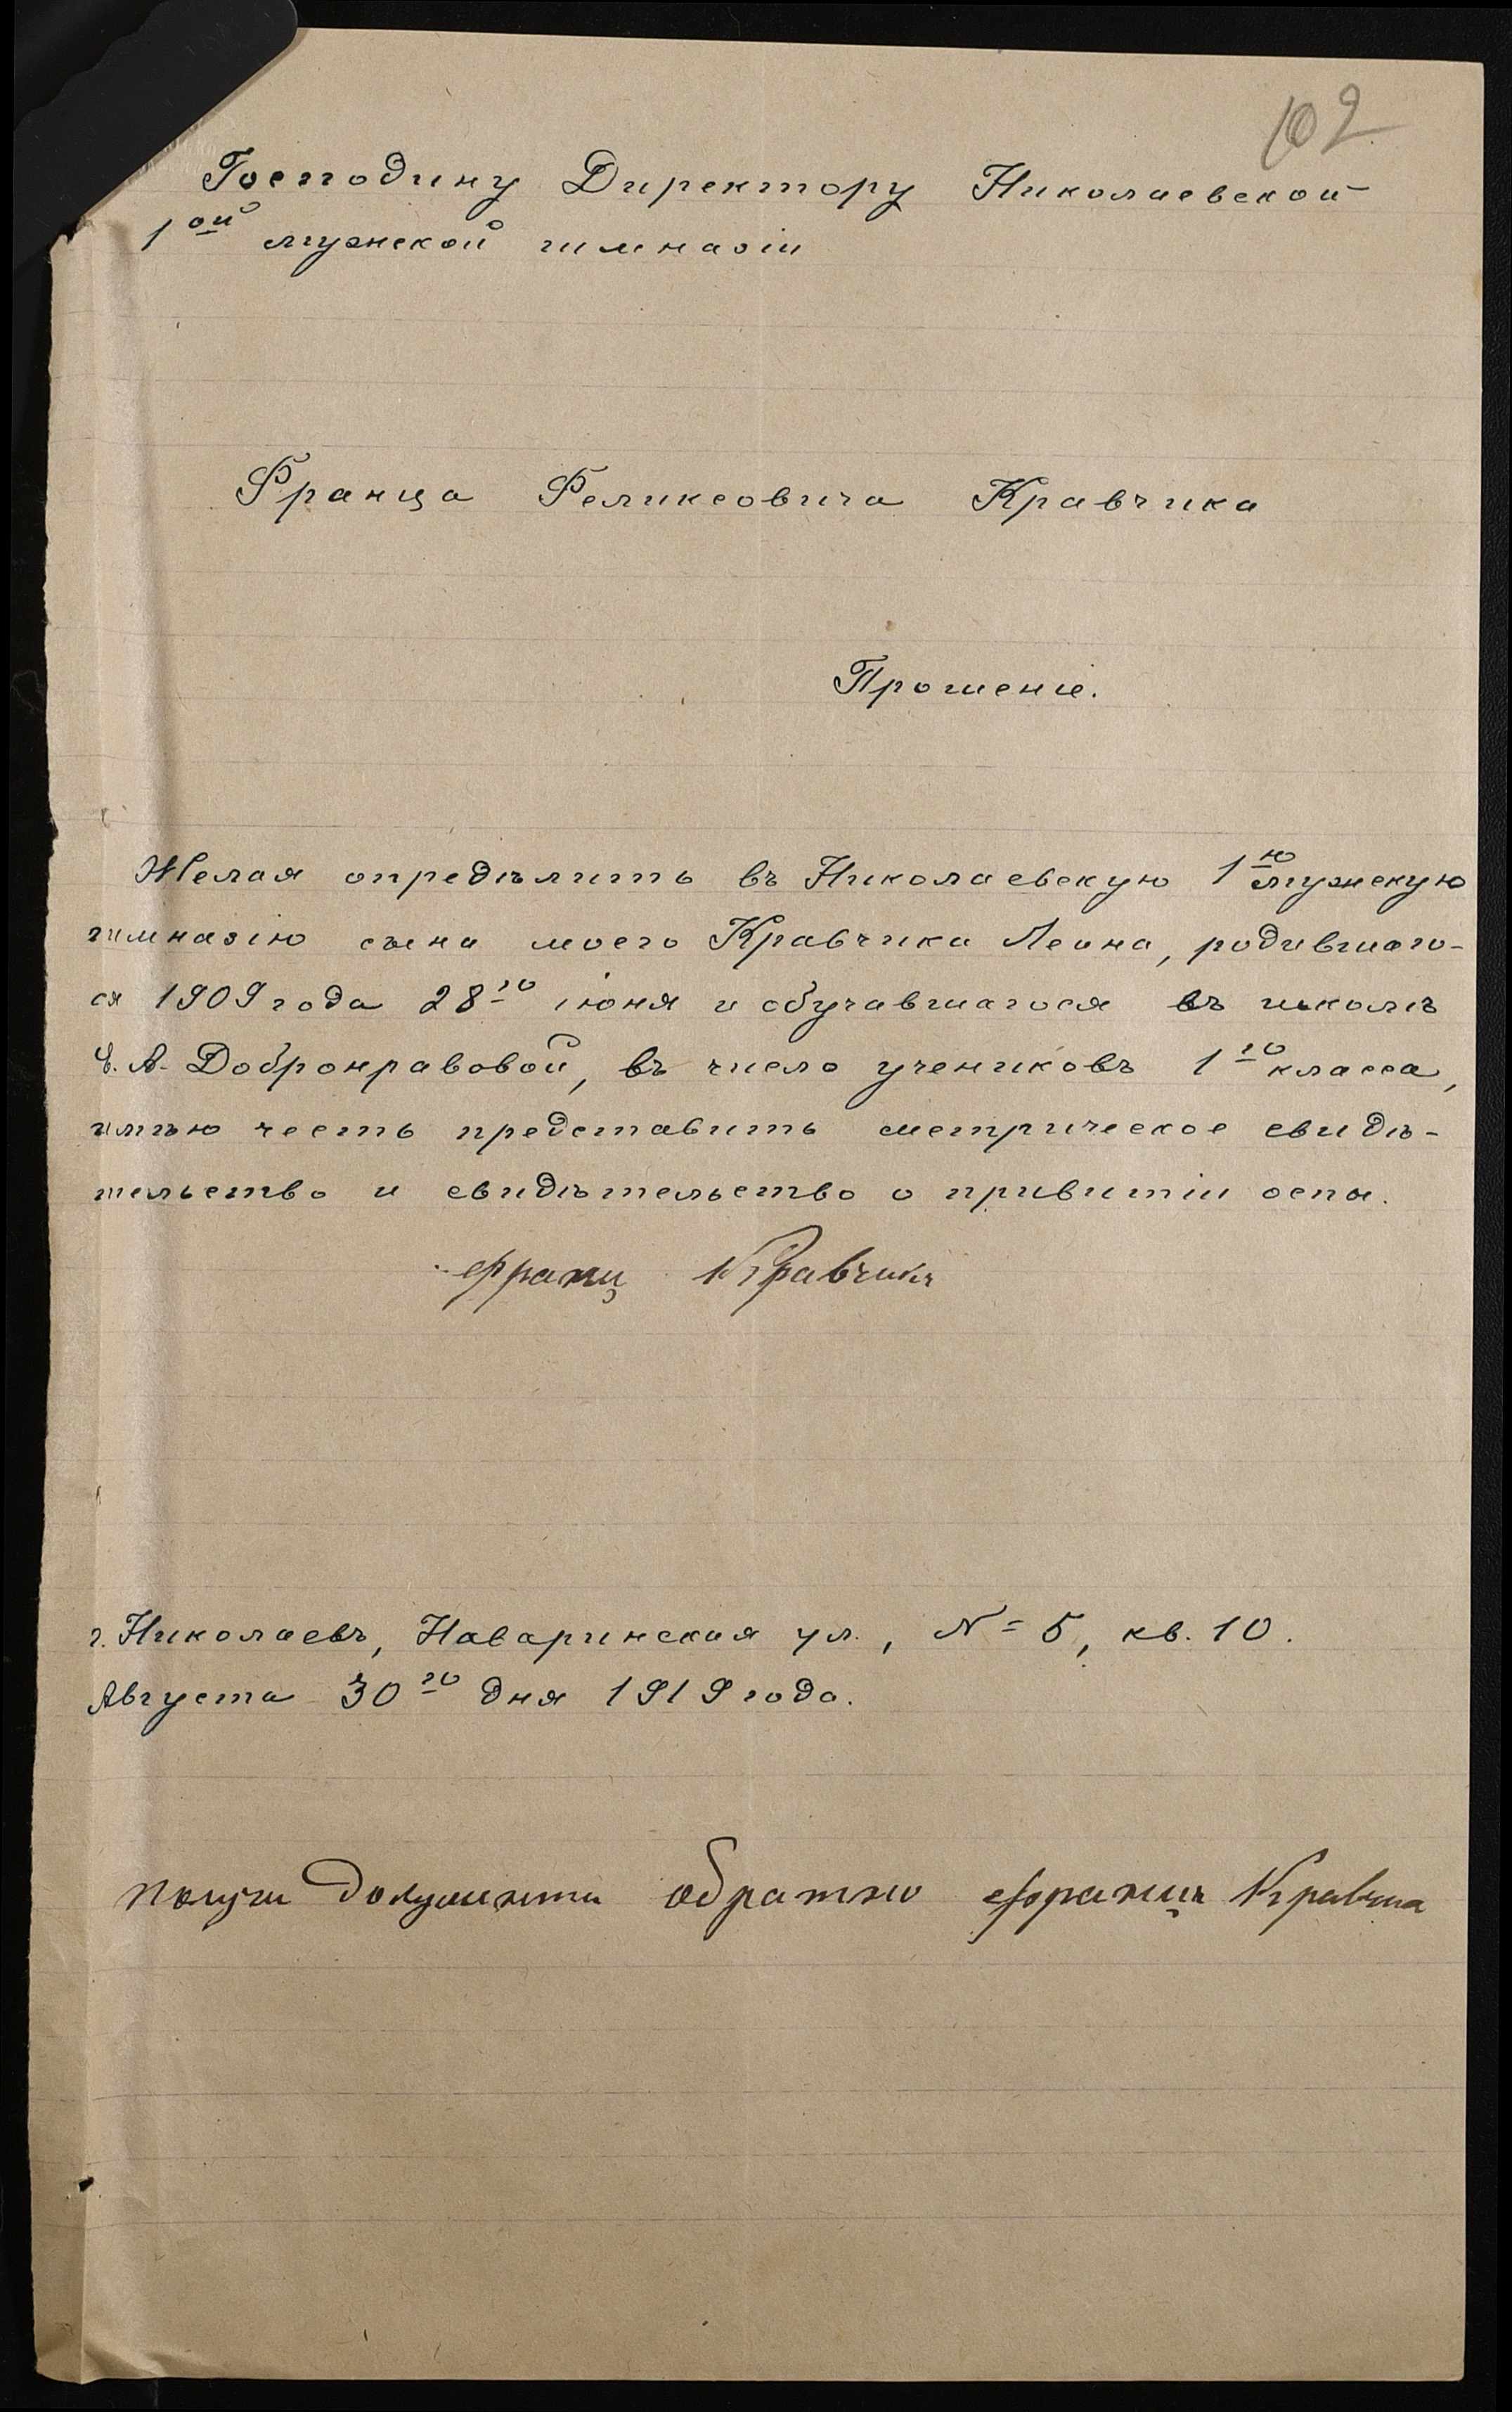 102
Господину Директору Николаевской
1ой мужской гимназіи
Франца Феликсовича Кравчика
Прошеніе.
Желая опредѣлить въ Николаевскую 1ю мужскую
гимназію сына моего Кравчика Леона, родившаго-
ся 1909 года 28го іюня и обучавшагося въ школѣ
Е. А. Добронравовой, въ число учениковъ 1го класса,
имѣю честь представить метрическое свидѣ-
тельство и свидѣтельство о привитіи оспы.
Франц Кравчикъ
г. Николаевъ, Наваринская ул., № 5, кв. 10.
Августа 30го дня 1919 года.
документи обратно Францъ